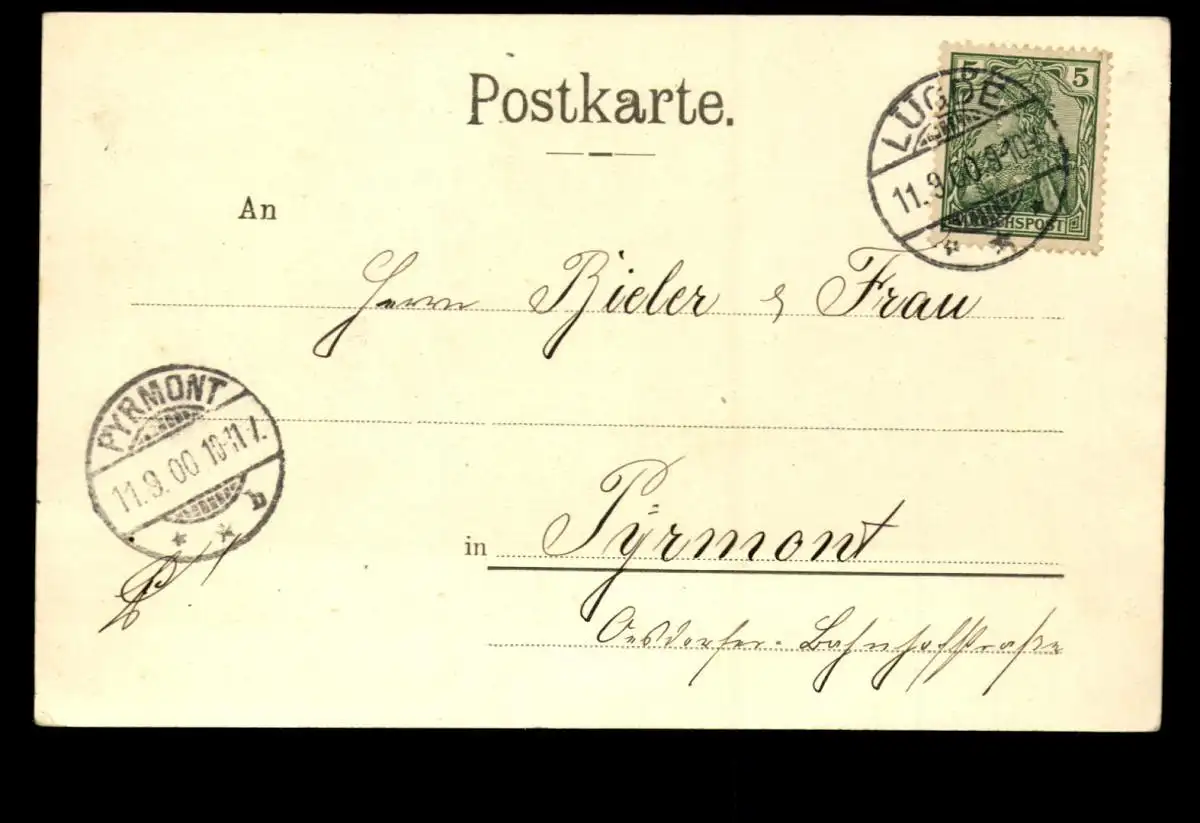 Postkarte.
5 5
REICHSPOST
LÜGDE
11.9.00.9-10V.
An
Herrn Bieler & Frau
PYRMONT
11.9.00 10-11 V.
b
in Pyrmont
Oesdorfer-Bahnhofstraße